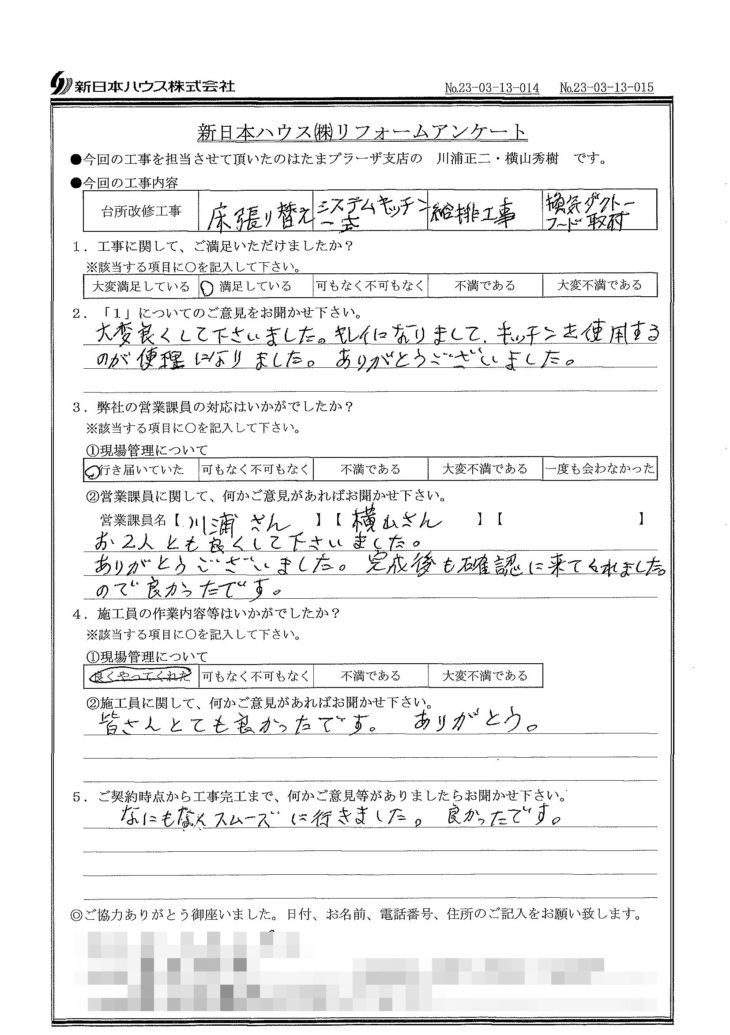 新日本ハウス株式会社 No.23-03-13-014 No.23-03-13-015
新日本ハウス㈱リフォームアンケート
●今回の工事を担当させて頂いたのはたまプラーザ支店の 川浦正二・横山秀樹 です。
●今回の工事内容
台所改修工事 床張り替え システムキッチン一式 給排工事 換気ダクトーフード取付
1．工事に関して、ご満足いただけましたか？
※該当する項目に○を記入して下さい。
大変満足している ○満足している 可もなく不可もなく 不満である 大変不満である
2．「1」についてのご意見をお聞かせ下さい。
大変良くして下さいました。キレイになりまして、キッチンを使用する
のが便理になりました。ありがとうございました。
3．弊社の営業課員の対応はいかがでしたか？
※該当する項目に○を記入して下さい。
①現場管理について
○行き届いていた 可もなく不可もなく 不満である 大変不満である 一度も会わなかった
②営業課員に関して、何かご意見があればお聞かせ下さい。
営業課員名【 川浦さん 】【 横山さん 】【 】
お2人とも良くして下さいました。
ありがとうございました。完成後も確認に来てくれました。
ので良かったです。
4．施工員の作業内容等はいかがでしたか？
※該当する項目に○を記入して下さい。
①現場管理について
良くやってくれた 可もなく不可もなく 不満である 大変不満である
②施工員に関して、何かご意見があればお聞かせ下さい。
皆さんとても良かったです。ありがとう。
5．ご契約時点から工事完工まで、何かご意見等がありましたらお聞かせ下さい。
なにもなくスムーズに行きました。良かったです。
◎ご協力ありがとう御座いました。日付、お名前、電話番号、住所のご記入をお願い致します。